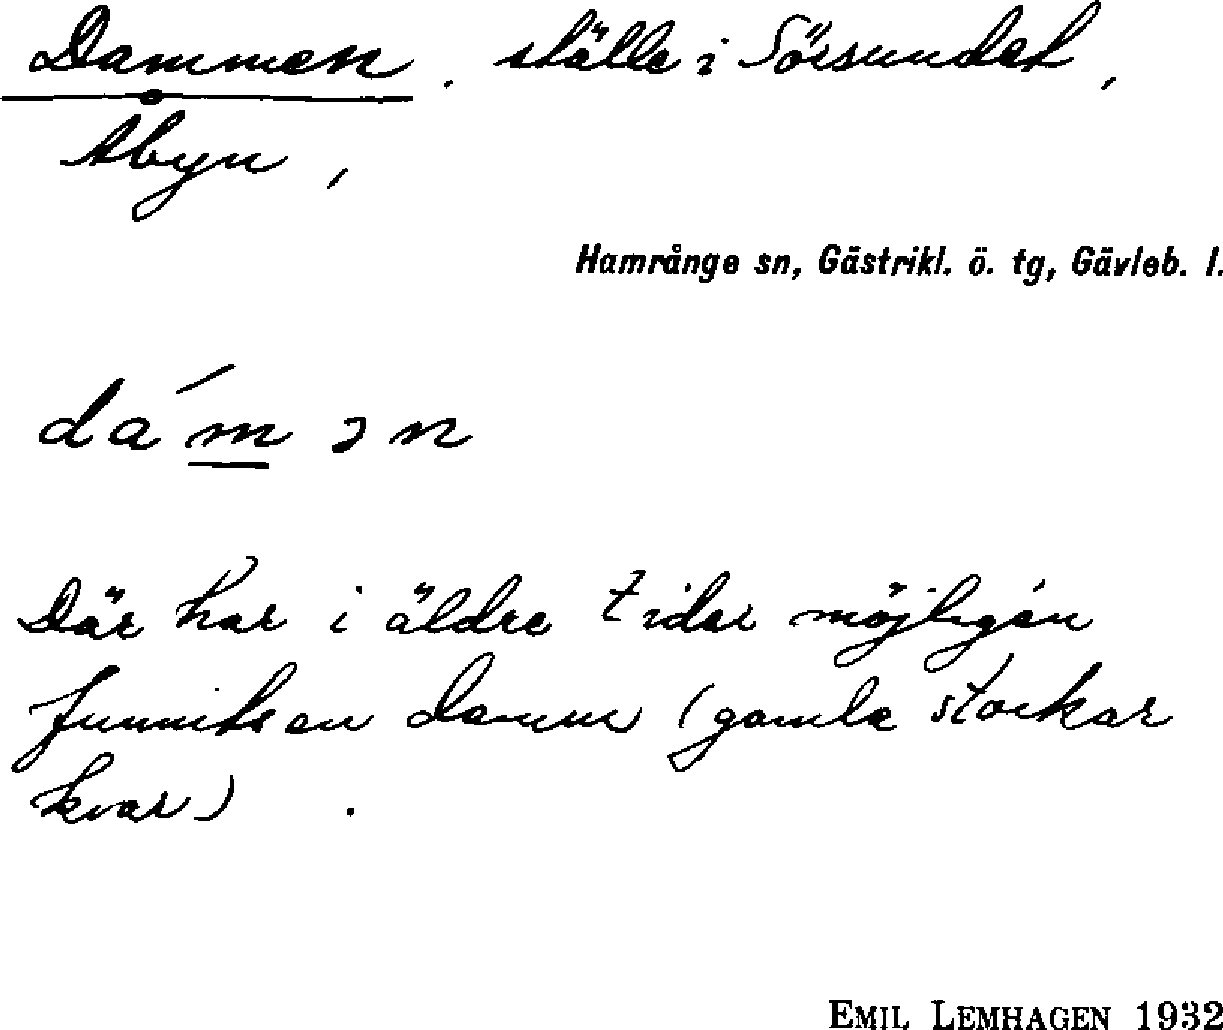 Dammen, ställe i Sörsundet,
Åbyn,
Hamrånge sn, Gästrikl. ö. tg, Gävleb. l.
dám̲ən
Där har i äldre tider möjligen
funnits en damm (gamla stockar
kvar).
EMIL LEMHAGEN 1932